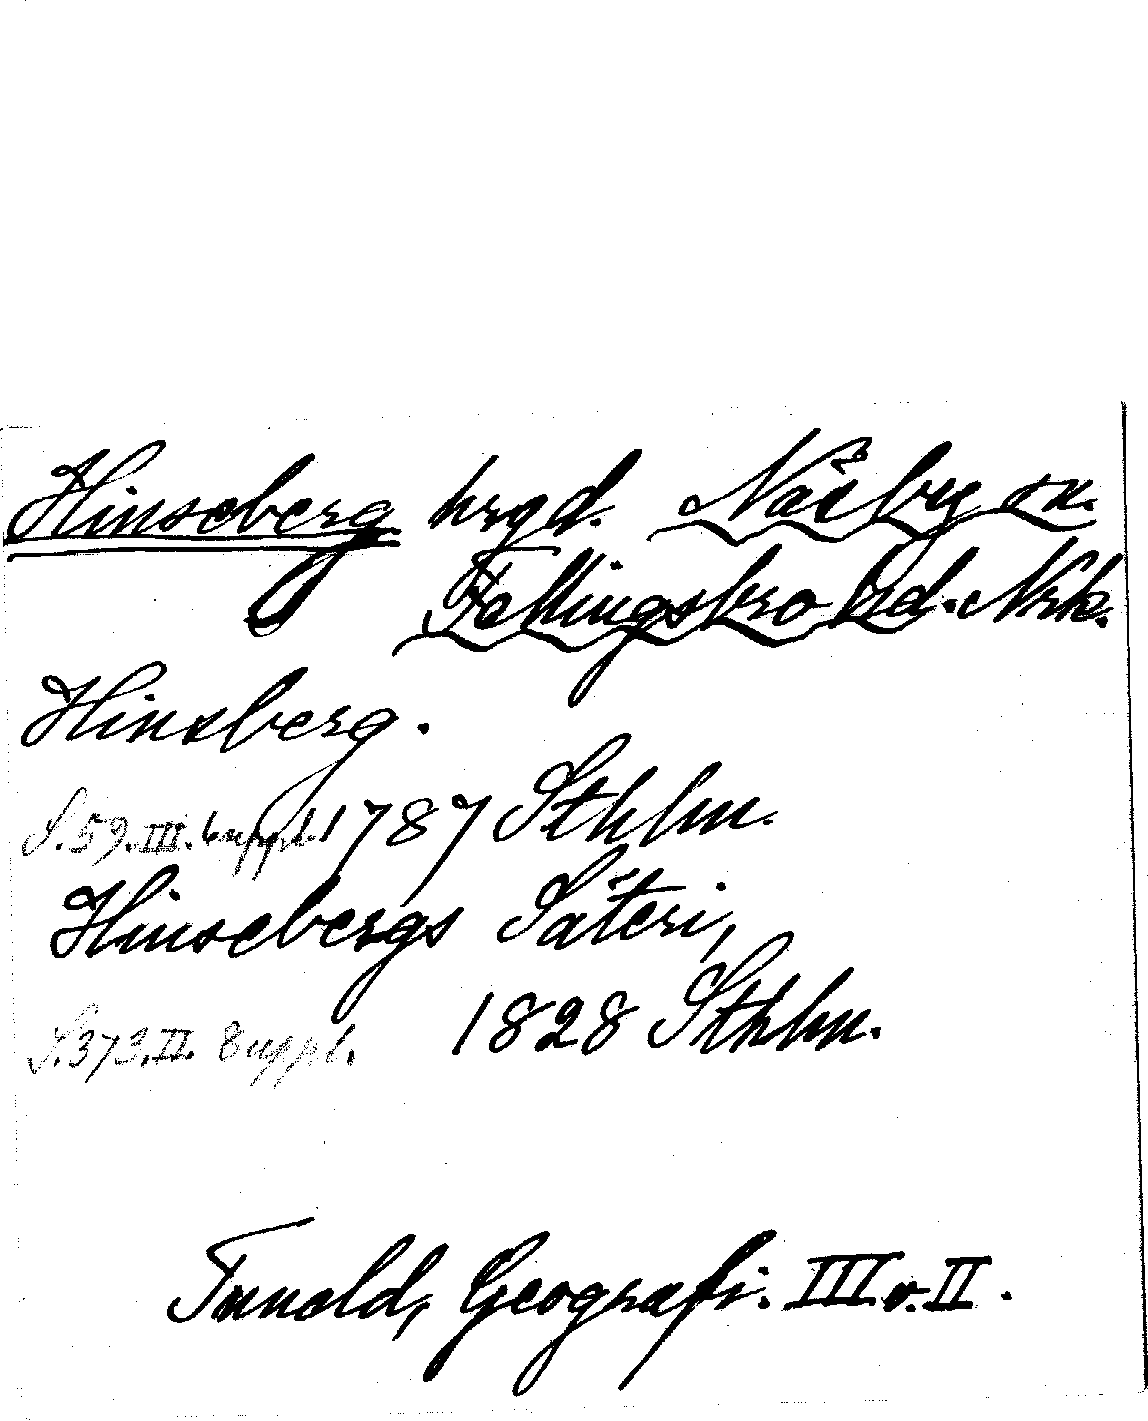 Hinseberg hrgd. Näsby sn.
Fellingsbro hd. Nrk.
Hinsberg.
S. 59. III. uppl. 1787 Sthlm.
Hinsebergs Säteri,
S. 373. II. 8 uppl. 1828 Sthlm.
Tuneld, Geografi. III o. II.